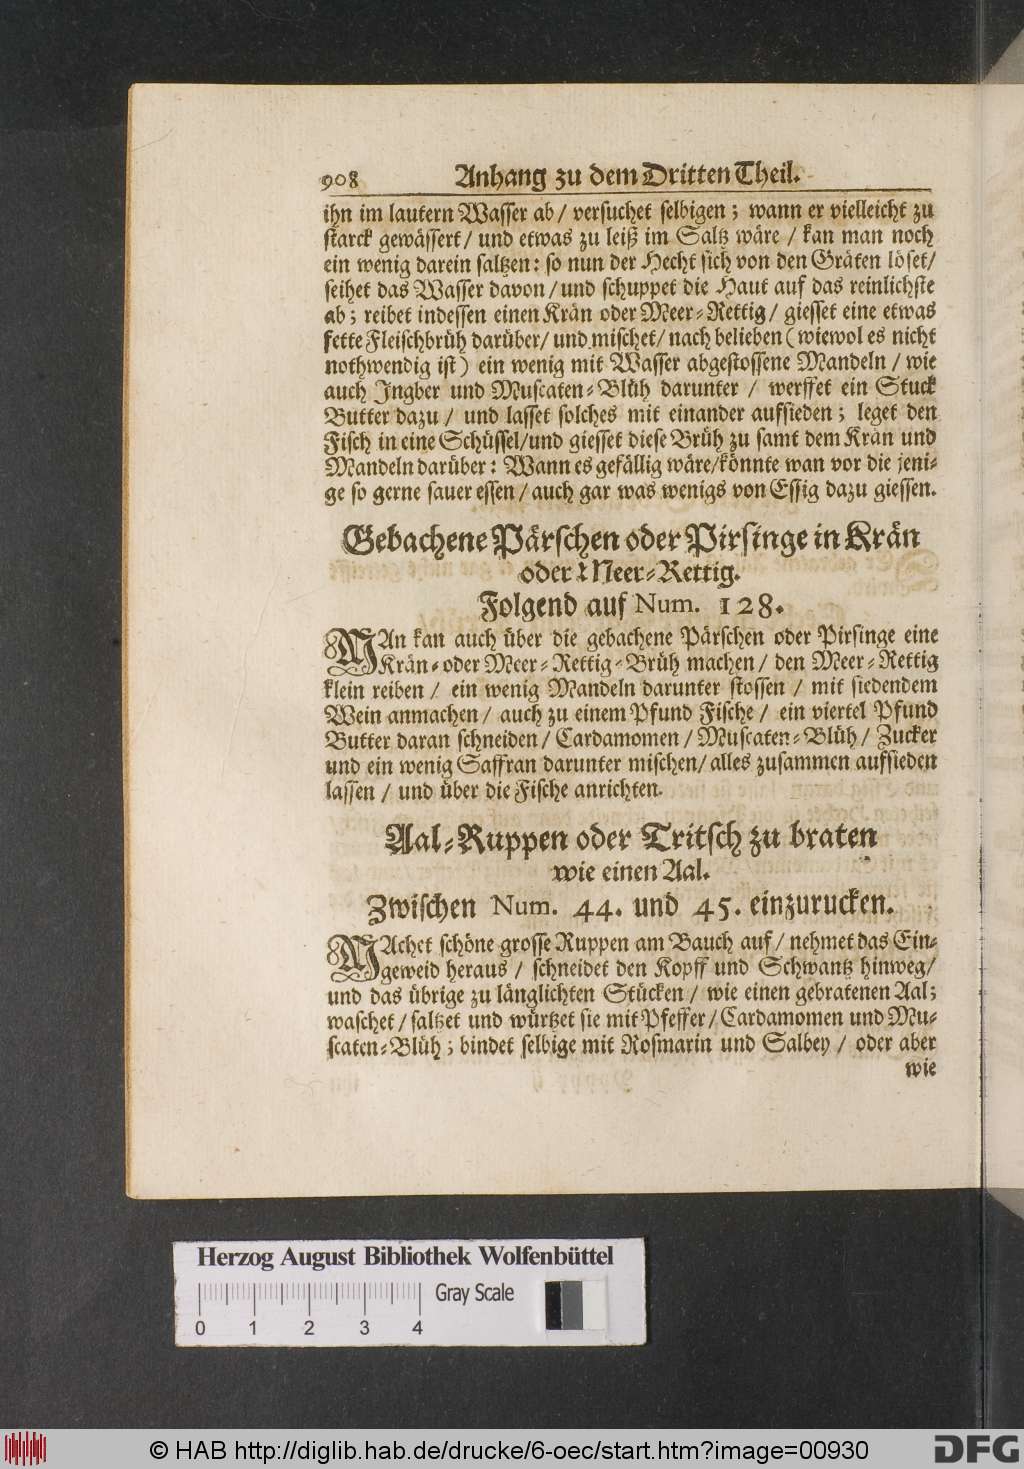 908 Anhang zu dem Dritten Theil.
ihn im lautern Wasser ab / versuchet selbigen ; wann er vielleicht zu
starck gewässert / und etwas zu leiß im Saltz wäre / kan man noch
ein wenig darein saltzen : so nun der Hecht sich von den Gräten löset /
seihet das Wasser davon / und schuppet die Haut auf das reinlichste
ab ; reibet indessen einen Krän oder Meer-Rettig / giesset eine etwas
fette Fleischbrüh darüber / und mischet / nach belieben ( wiewol es nicht
nothwendig ist ) ein wenig mit Wasser abgestossene Mandeln / wie
auch Ingber und Muscaten-Blüh darunter / werffet ein Stuck
Butter dazu / und lasset solches mit einander aufsieden ; leget den
Fisch in eine Schüssel / und giesset diese Brüh zu samt dem Krän und
Mandeln darüber : Wann es gefällig wäre / könnte wan vor die jeni-
ge so gerne sauer essen / auch gar was wenigs von Essig dazu giessen.
Gebachene Pärschen oder Pirsinge in Krän
oder Meer-Rettig.
Folgend auf Num. 128.
MAn kan auch über die gebachene Pärschen oder Pirsinge eine
Krän- oder Meer-Rettig-Brüh machen / den Meer-Rettig
klein reiben / ein wenig Mandeln darunter stossen / mit siedendem
Wein anmachen / auch zu einem Pfund Fische / ein viertel Pfund
Butter daran schneiden / Cardamomen / Muscaten-Blüh / Zucker
und ein wenig Saffran darunter mischen / alles zusammen aufsieden
lassen / und über die Fische anrichten.
Aal-Ruppen oder Tritsch zu braten
wie einen Aal.
Zwischen Num. 44. und 45. einzurucken.
MAchet schöne grosse Ruppen am Bauch auf / nehmet das Ein-
geweid heraus / schneidet den Kopff und Schwantz hinweg /
und das übrige zu länglichten Stücken / wie einen gebratenen Aal ;
waschet / saltzet und würtzet sie mit Pfeffer / Cardamomen und Mu-
scaten-Blüh ; bindet selbige mit Rosmarin und Salbey / oder aber
wie
Herzog August Bibliothek Wolfenbüttel
Gray Scale
0 1 2 3 4
© HAB http://diglib.hab.de/drucke/6-oec/start.htm?image=00930
DFG